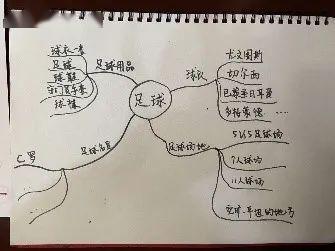 足球
足球用品
球衣一套
足球
球鞋
守门员手套
球袜
球队
尤文图斯
切尔西
巴黎圣日耳曼
多特蒙德
...
足球场地
5V5足球场
个人球场
11人球场
空旷、平坦的地方
足球名星
C罗